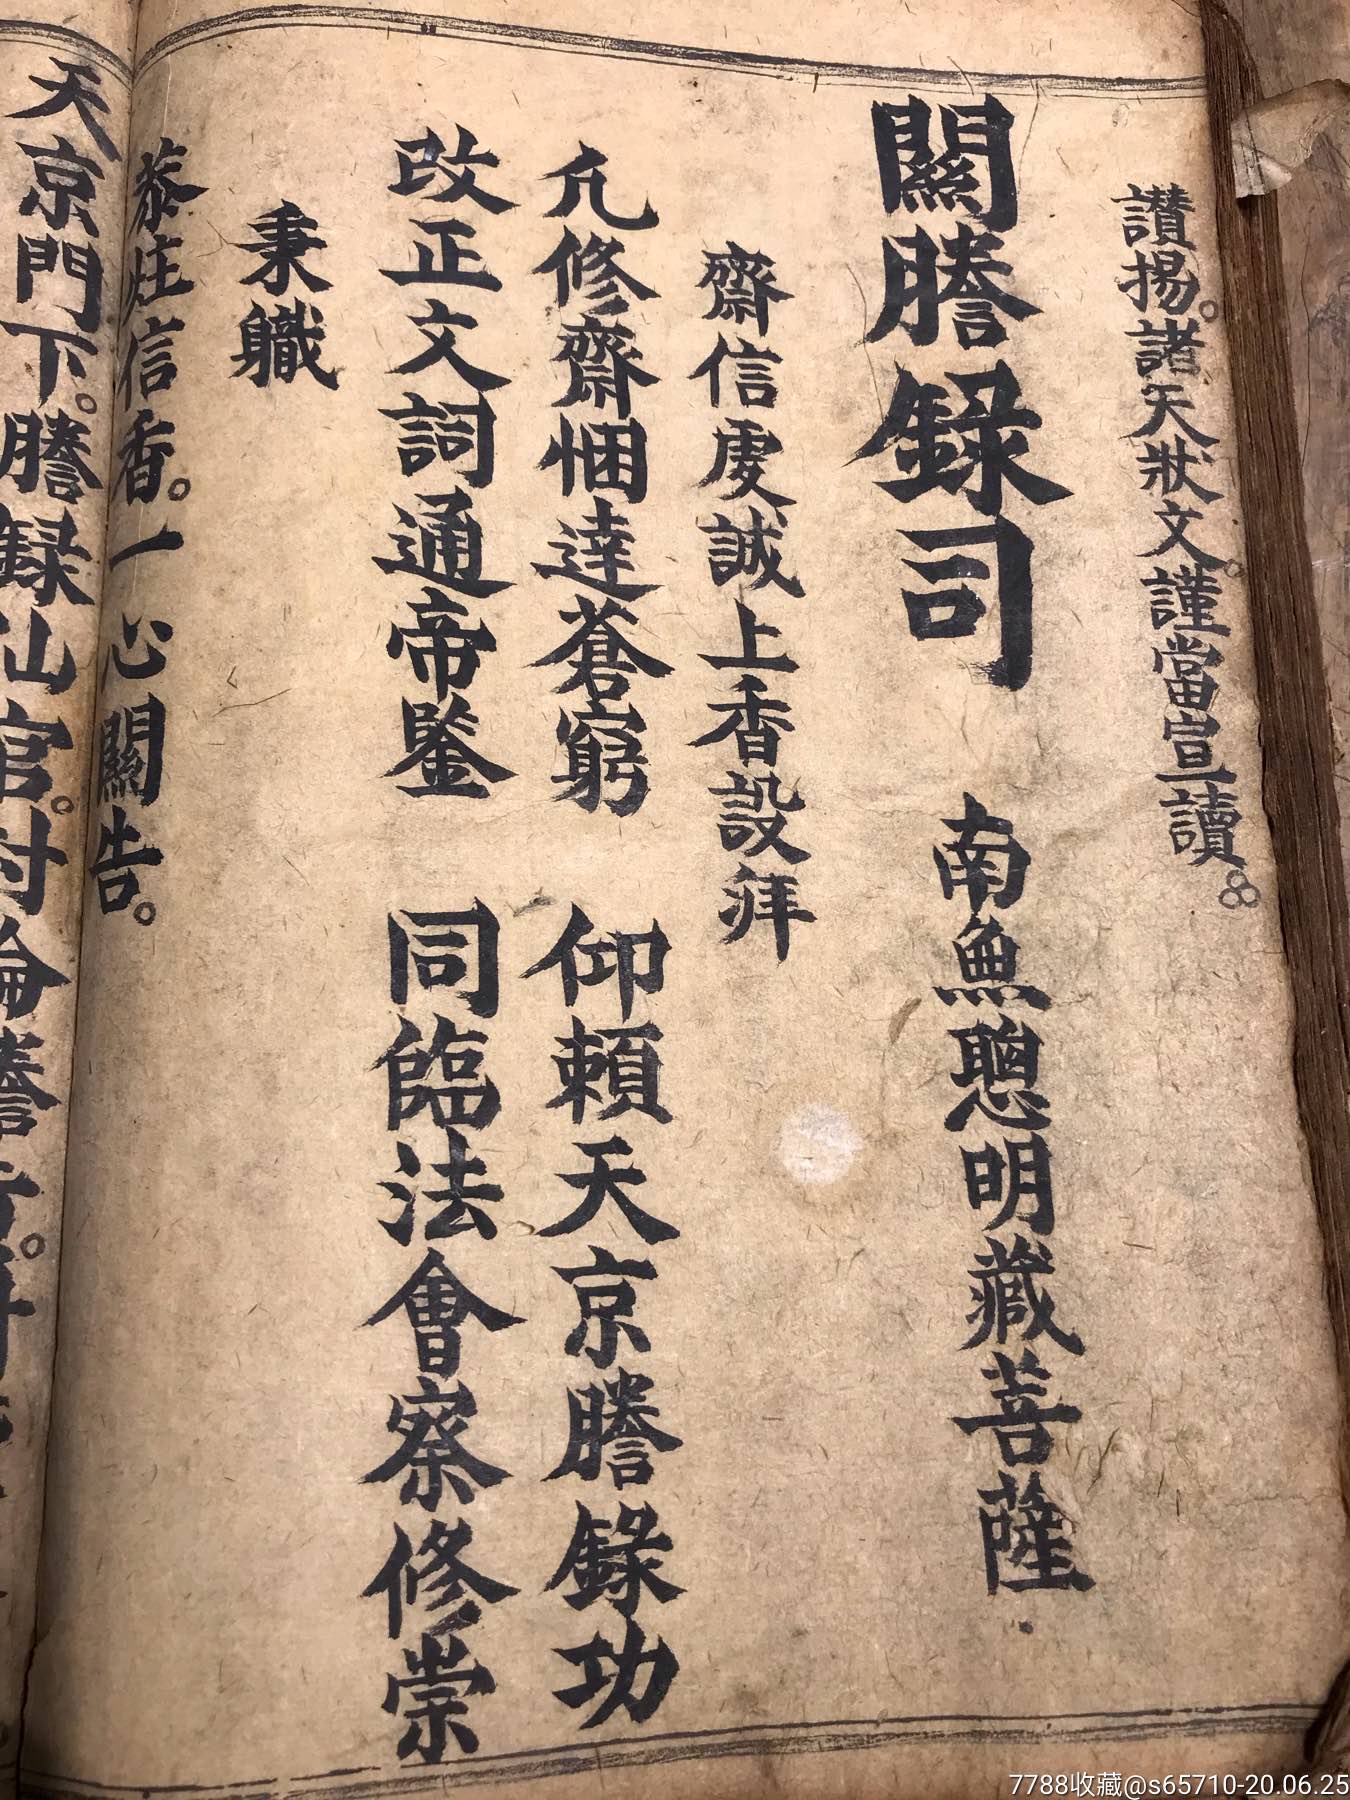 讃揚。諸天狀文。謹當宣讀。
關謄録司 南無聰明藏菩薩
齋信虔誠上香設拜
凢修齋悃達蒼穹 仰頼天京謄錄功
改正文詞通帝鑒 同臨法會察修崇
秉軄
恭炷信香。一心關告。
天京門下。謄録仙官。
7788收藏@s65710-20.06.25